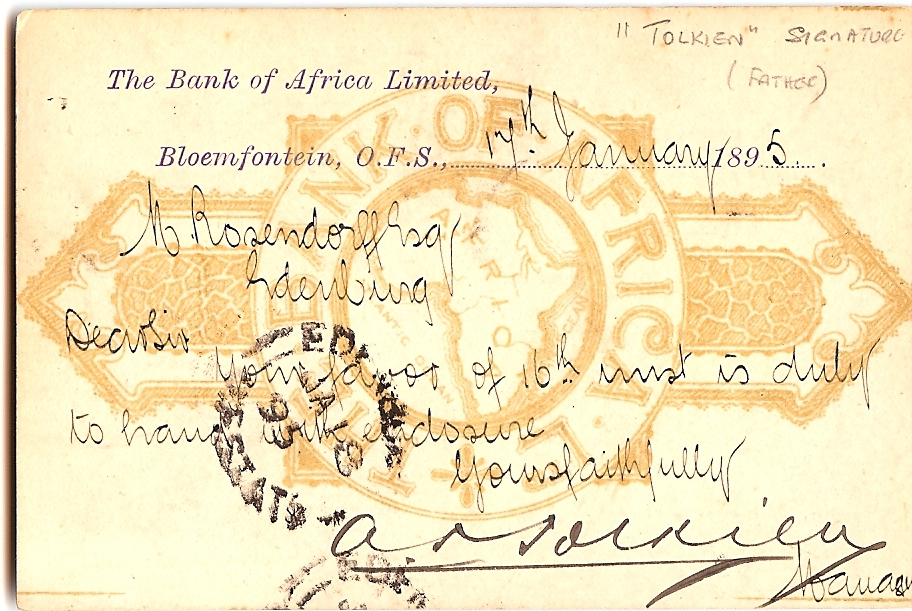 "TOLKIEN" SIGNATURE
(FATHER)
The Bank of Africa Limited,
Bloemfontein, O.F.S., 17th January 1895.
M. Rosendorff Esq
Edenburg
Dear Sir
Your favor of 16th inst is duly
to hand with enclosure
Yours faithfully
A R Tolkien
Manager
THE BANK OF AFRICA LTD